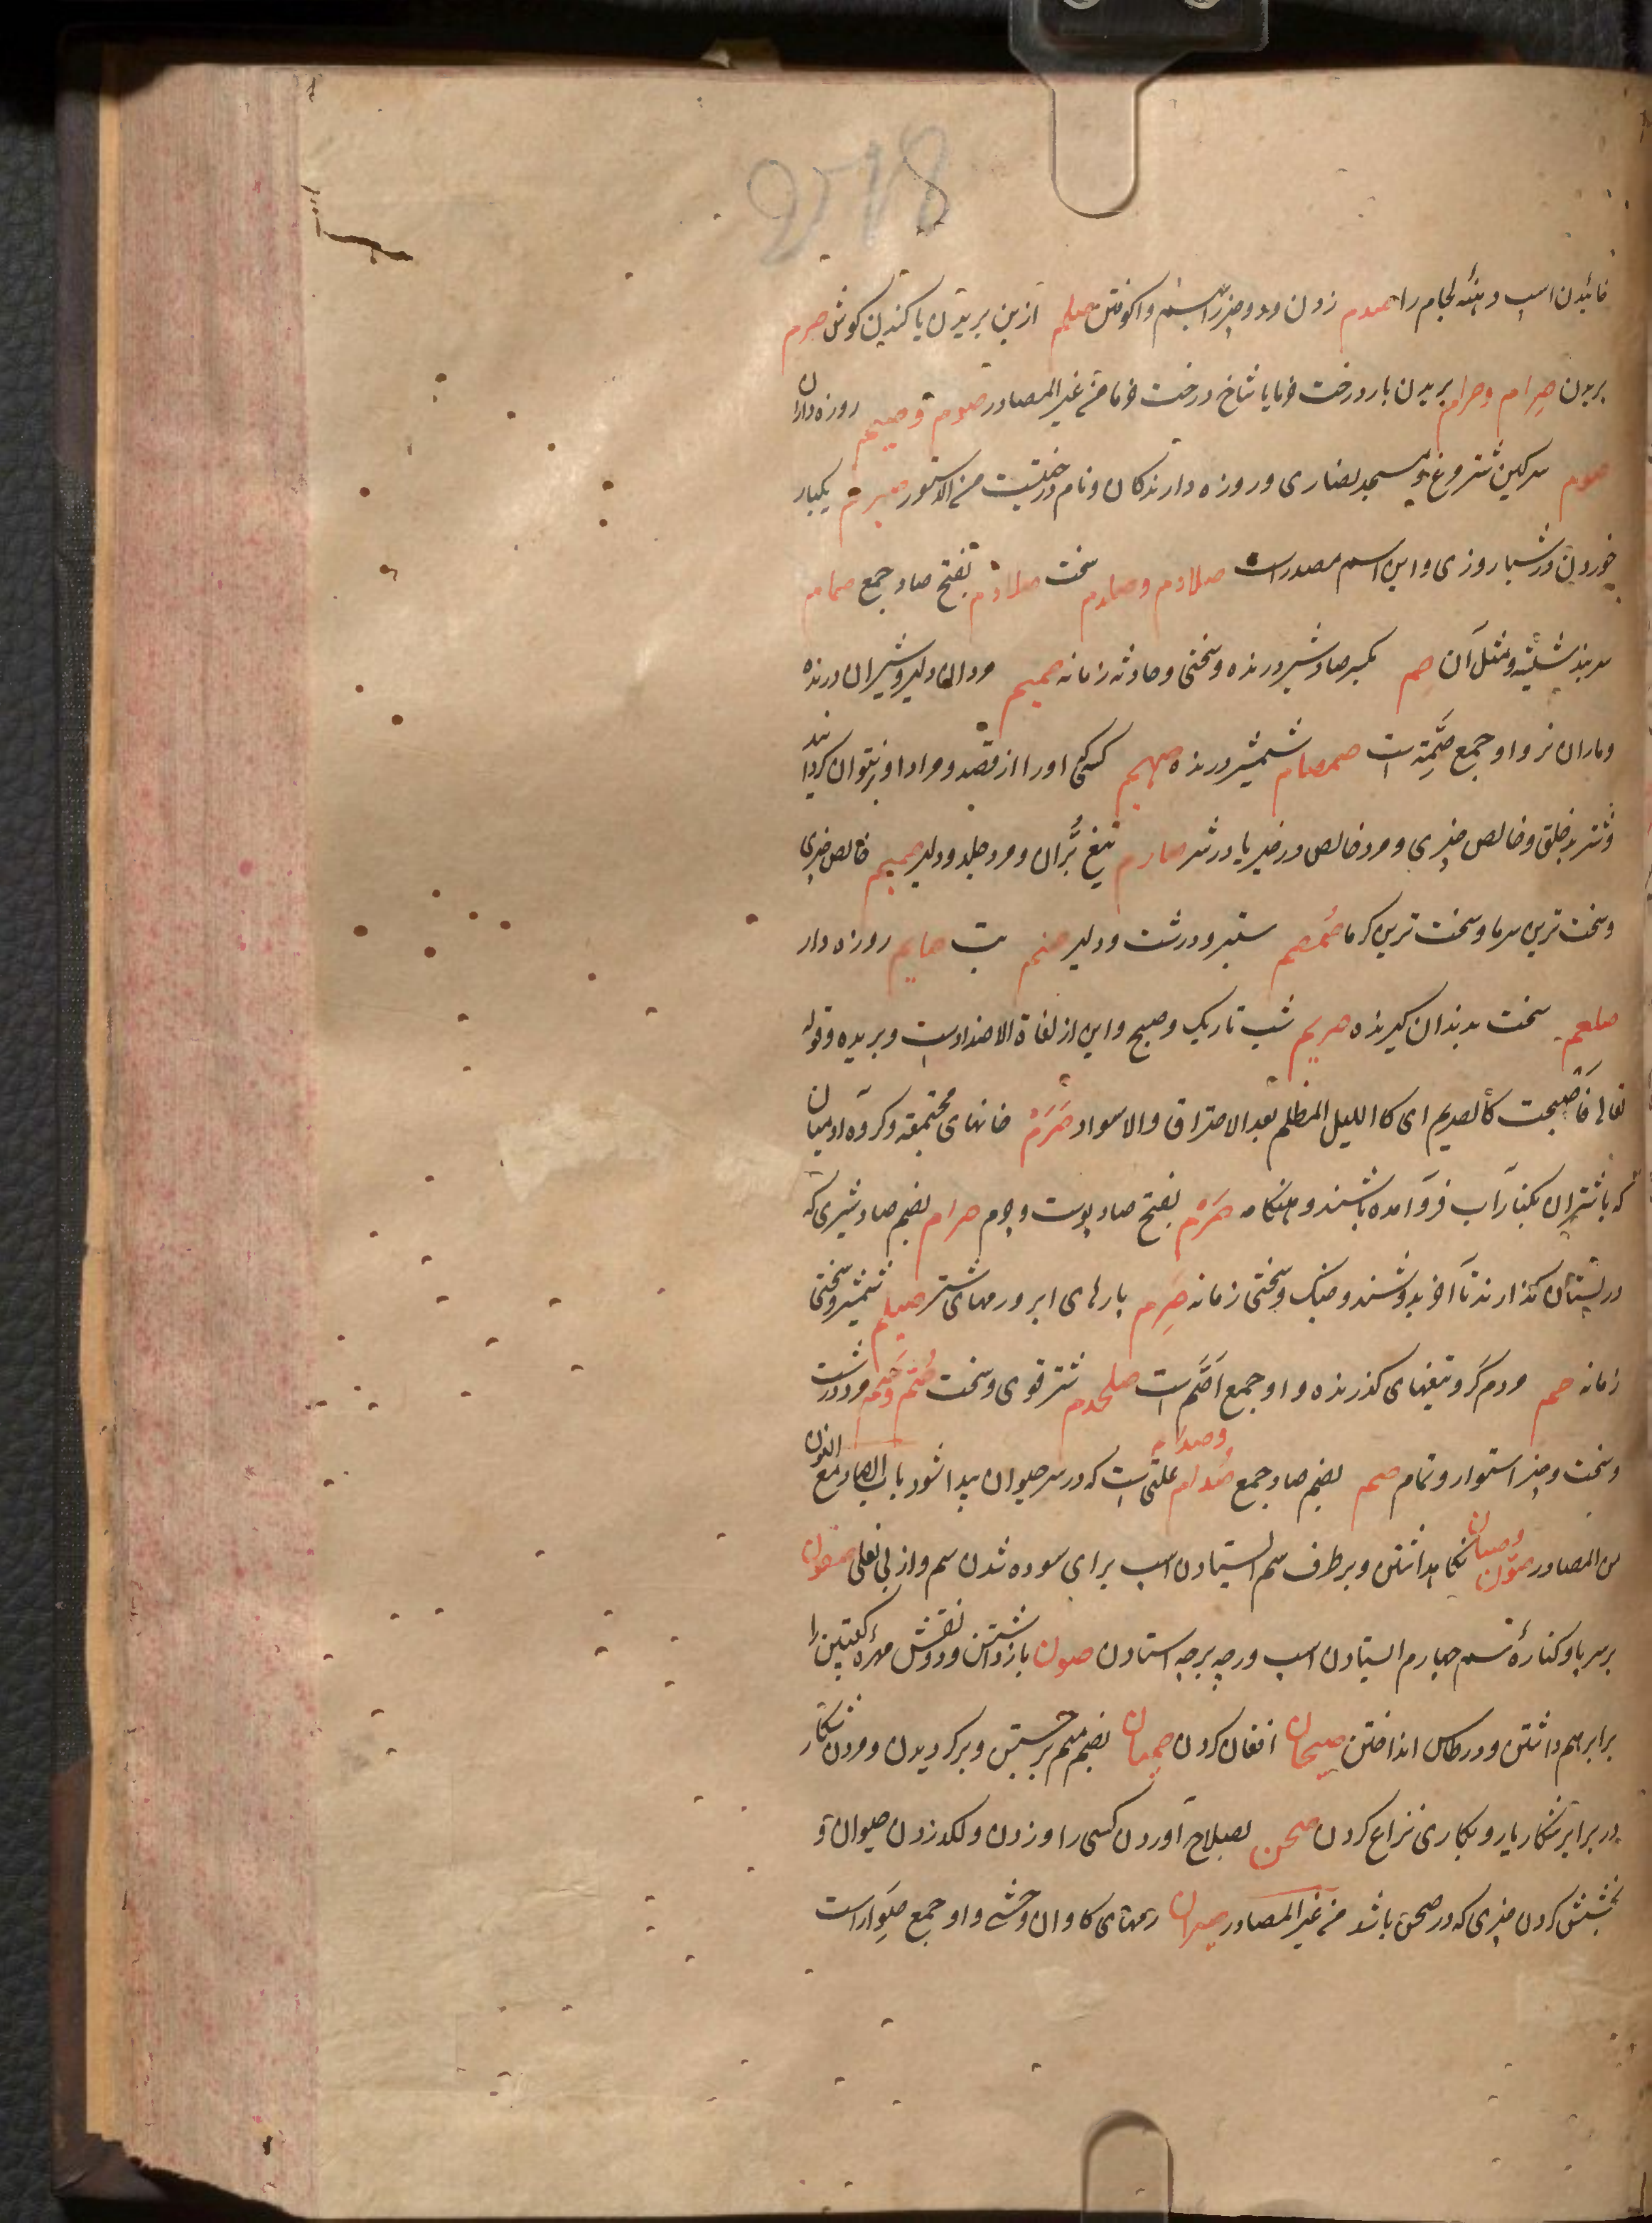 278
خائیدن اسپ دهنه لجام را صدم زدن ودو چیز را بهم واکوفتن صلم از بن بریدن یا کندن کوش صرم
بریدن صِرام وصَرام بریدن بار درخت خرما یا شاخ درخت خرما من غیر المصادر صوم وصیم روزه داران
صوم سرکین شترمرغ ومسجد نصاری وروزه دارندکان ونام درختیست من الدستور صیرم یکبار
خوردن در شبا روزی واین اسم مصدر است صلادم وصلدم سخت صلادم بفتح صاد جمع صمام
سربند شیشه ومثل آن صم بکسر صاد شیر درنده وسختی وحادثه زمانه صمیم مردان دلیر وشیران درنده
وماران نر واو جمع صِمّة است صمصام شمشیر درنده صیهم کسی که اورا از قصد ومراد او نتوان کردانید
وشتر بدخلق وخالص چیزی ومرد خالص در خیر یا در شر صارم تیغ بُرّان ومرد جلد ودلیر صمیم خالص چیزی
وسخت ترین سرما وسخت ترین کرما صُمصم ستبر ودرشت ودلیر صنم بت صایم روزه دار
سخت بدندان کیرنده صریم شب تاریک وصبح واین از لغاة الاضدادست وبریده وقوله
تعالی فاَصبحت کالصریم ای کا اللیل المظلم بعد الاحتراق والاسواد صِرَم خانهای مجتمعه وکروه ادمیان
که با شتران بکنار آب فرو آمده باشند وهنکامه صَرْم بفتح صاد پوست وچرم صرام بضم صاد شیری که
در پستان بکذارند تا آخر بدوشند وجنک وسختی زمانه صِرَم پارهای ابر ورمهای شتر صیلم شمشیر وسختی
زمانه صم مردم کر وتیغهای کذرنده واو جمع اَصَمّ است صلخدم شتر قوی وسخت صُتم وصَتم مرد درشت
وسخت وچیز استوار وتمام صمم بضم صاد جمع صُدام وصدام علتی است که در سر حیوان پیدا شود باب الصاد مع النون
من المصادر صون وصیان نکاهداشتن وبر طرف سم ایستادن اسپ برای سوده شدن سم واز بی نعلی صفون
بر سه پا وکناره سم چهارم ایستادن اسپ ورجه برجه استادن صون بازداشتن ودو نقش مهره کعبتین را
برابر هم داشتن ودر طاس انداختن صیحان افغان کردن صمیان بضم میم برجستن وبرکردیدن ومردن شکار
در برابر شکاریار وبکاری نزاع کردن صحن بصلاح آوردن کسی را وزدن ولکد زدن حیوان و
بخشش کردن چیزی که در صحن باشد من غیر المصادر صیران رمهای کاوان وحشی واو جمع صِوار است